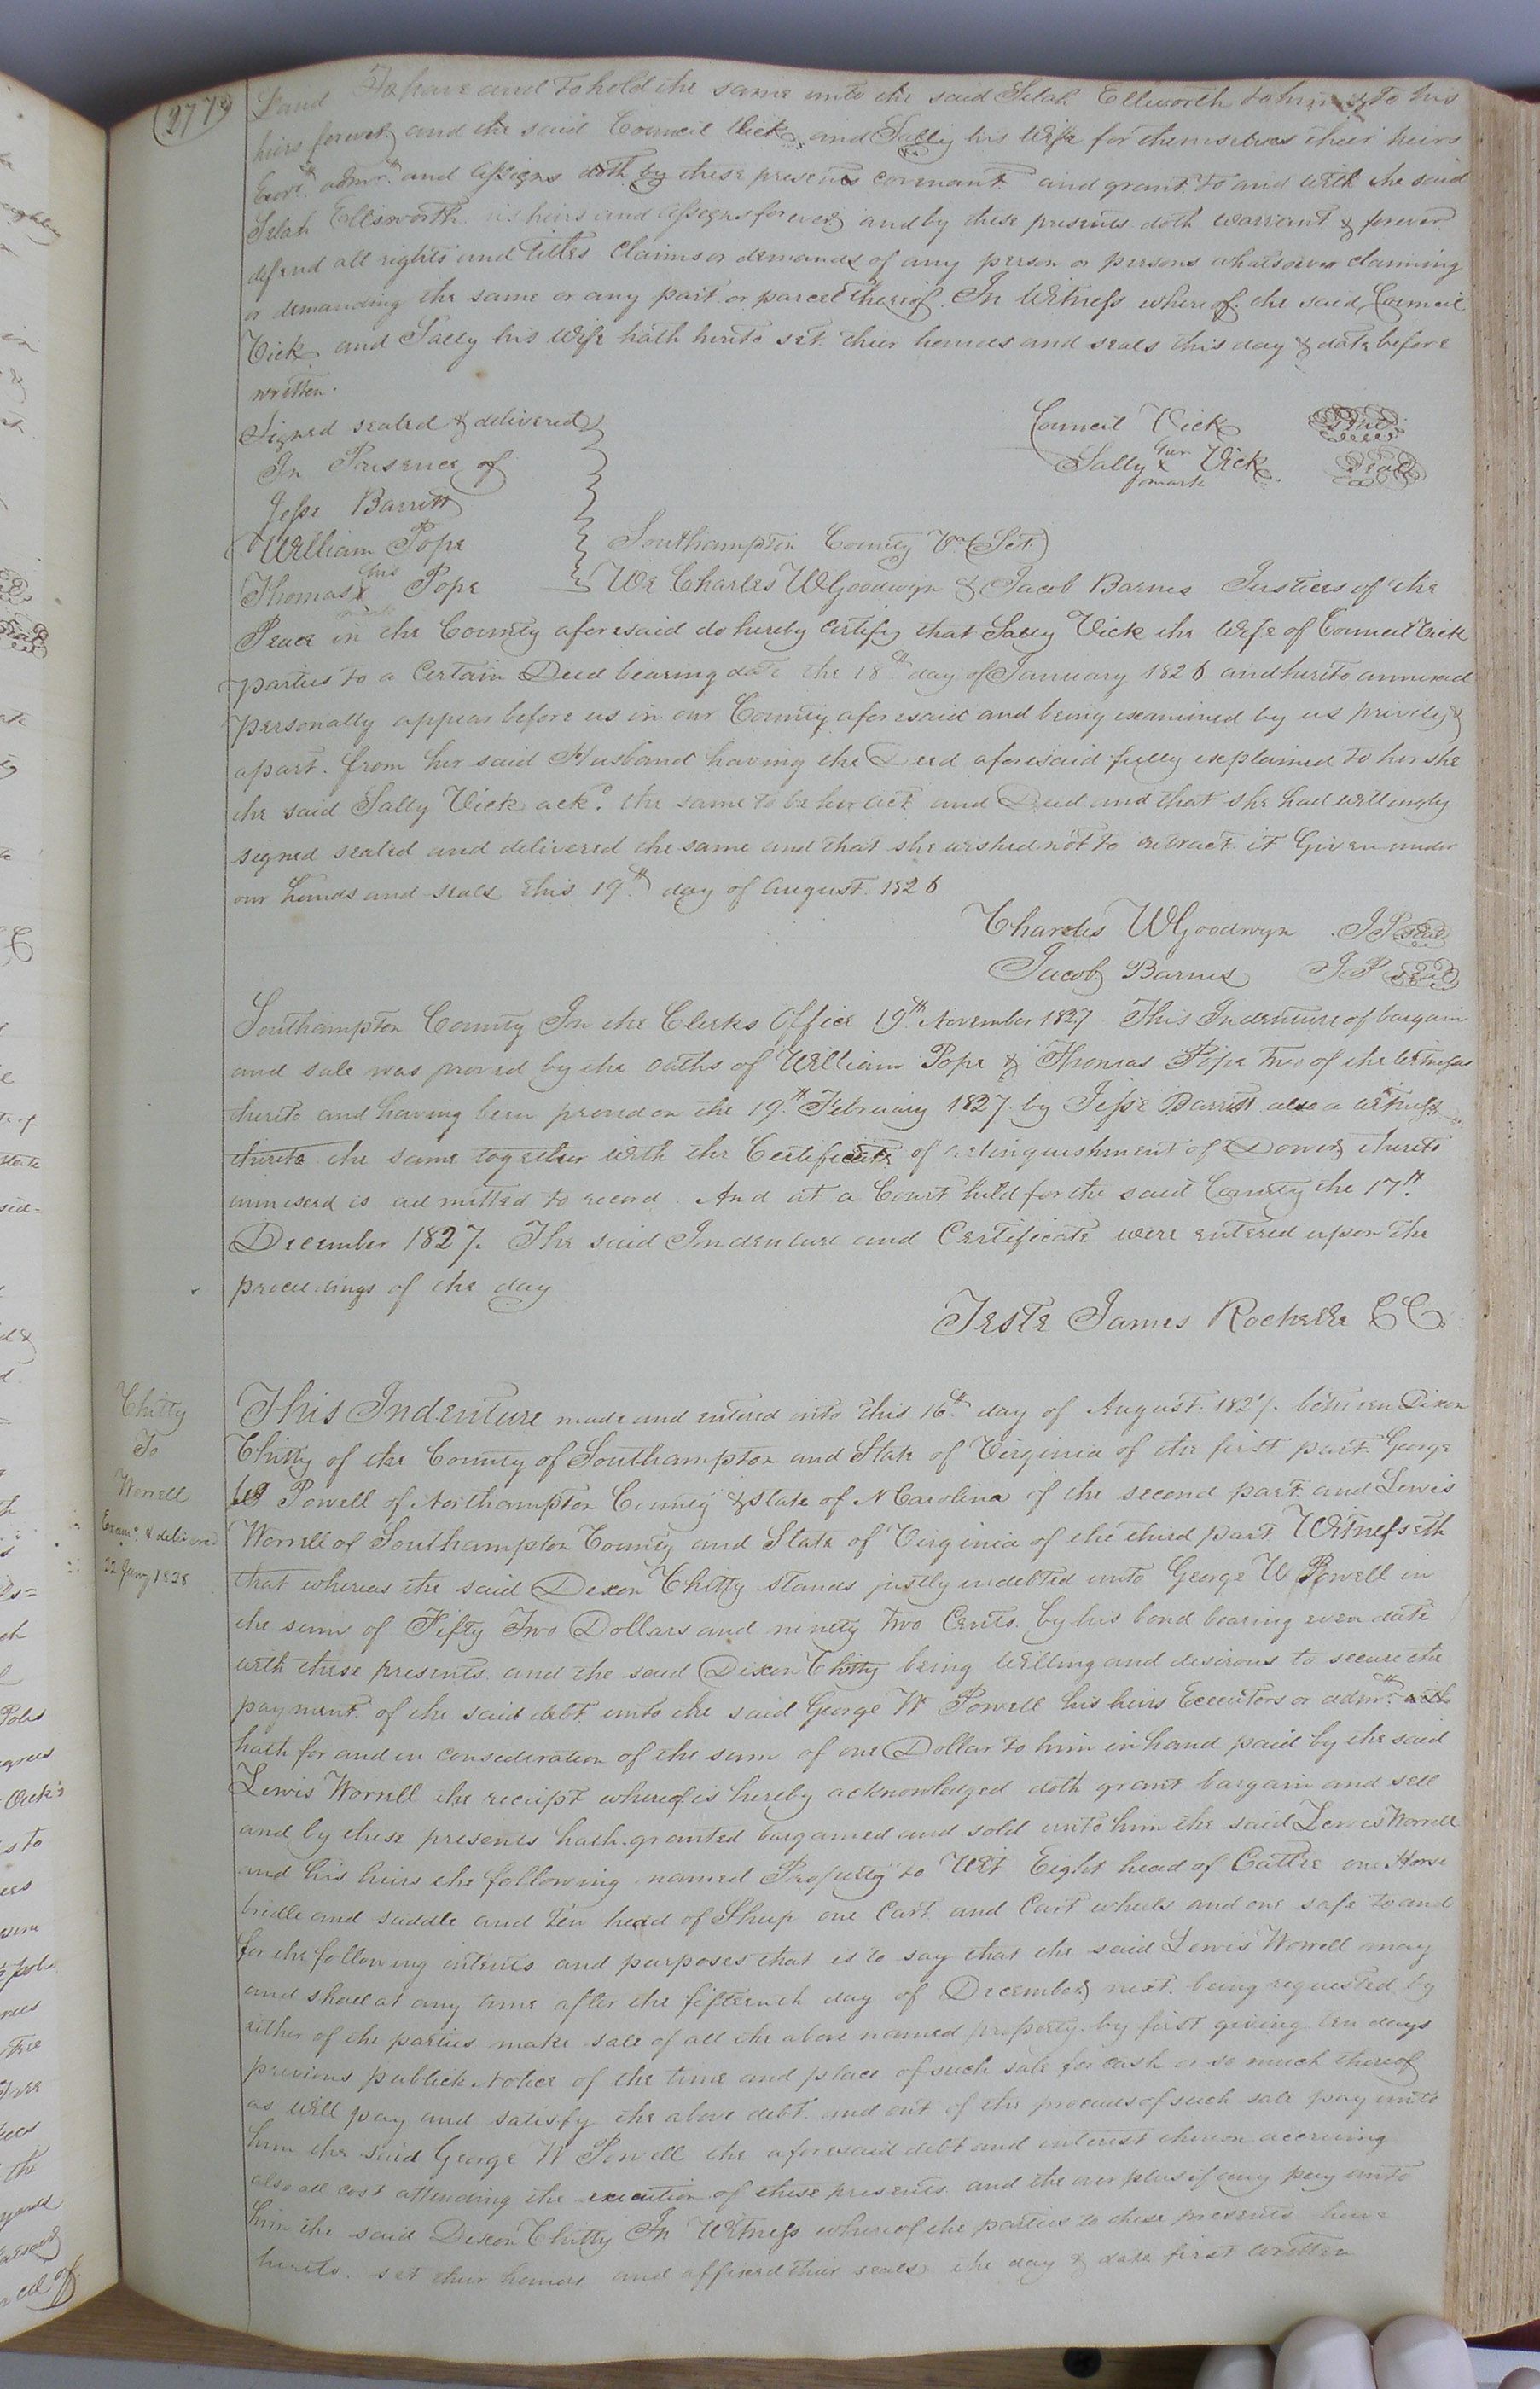 277
Land To have and to hold the same unto the said Selah Ellsworth to him & to his
heirs forever and the said Council Vick and Sally his Wife for themselves their heirs
Exors. admrs. and assigns doth by these presents covenant and grant to and with the said
Selah Ellsworth his heirs and assigns forever and by these presents doth warrant & forever
defend all rights and titles Claims or demands of any person or persons whatsoever claiming
or demanding the same or any part or parcel thereof. In Witness whereof the said Council
Vick and Sally his Wife hath hereto set their hands and seals this day & date before
written.
Signed sealed & delivered
In Presence of
Jesse Barrett
William Pope
Thomas his x Pope
Council Vick Seal
Sally her x mark Vick Seal
Southampton County Va (Sct.)
We Charles W Goodwyn & Jacob Barnes Justices of the
Peace in the County aforesaid do hereby certify that Sally Vick the Wife of Council Vick
parties to a Certain Deed bearing date the 18th day of January 1826 and hereto annexed
personally appear before us in our County aforesaid and being examined by us privily &
apart from her said Husband having the Deed aforesaid fully explained to her she
the said Sally Vick ackd. the same to be her act and Deed and that she had willingly
signed sealed and delivered the same and that she wished not to retract it Given under
our hands and seals this 19th day of August 1826
Charles W Goodwyn JP Seal
Jacob Barnes JP Seal
Southampton County In the Clerks Office 19th November 1827 This Indenture of bargain
and sale was proved by the oaths of William Pope & Thomas Pope two of the witnesses
thereto and having been proved on the 19th February 1827 by Jesse Barrett also a witness
thereto the same together with the Certificate of relinquishment of Dower thereto
annexed is admitted to record. And at a Court held for the said County the 17th
December 1827. The said Indenture and Certificate were entered upon the
proceedings of the day
Teste James Rochelle CC.
Chitty
To
Worrell
Examd. & delivered
22 Jany 1828
This Indenture made and entered into this 16th day of August 1827. between Dixon
Chitty of the County of Southampton and State of Virginia of the first part George
W Powell of Northampton County & State of N Carolina of the second part and Lewis
Worrell of Southampton County and State of Virginia of the third part Witnesseth
that whereas the said Dixon Chitty stands justly indebted unto George W Powell in
the sum of Fifty Two Dollars and ninety two Cents by his bond bearing even date
with these presents and the said Dixon Chitty being Willing and desirous to secure the
payment of the said debt unto the said George W Powell his heirs Executors or admrs.
hath for and in consideration of the sum of one Dollar to him in hand paid by the said
Lewis Worrell the receipt whereof is hereby acknowledged doth grant bargain and sell
and by these presents hath granted bargained and sold unto him the said Lewis Worrell
and his heirs the following named Property to Wit Eight head of Cattle one Horse
bridle and saddle and Ten head of Sheep one Cart and Cart wheels and one safe to and
for the following intents and purposes that is to say that the said Lewis Worrell may
and shall at any time after the fifteenth day of December next being requested by
either of the parties make sale of all the above named property by first giving ten days
previous publick Notice of the time and place of such sale for cash or so much thereof
as will pay and satisfy the above debt and out of the proceeds of such sale pay unto
him the said George W Powell the aforesaid debt and interest thereon accruing
also all cost attending the execution of these presents and the over plus if any pay unto
him the said Dixon Chitty In Witness whereof the parties to these presents have
hereto set their hands and affixed their seals the day & date first written